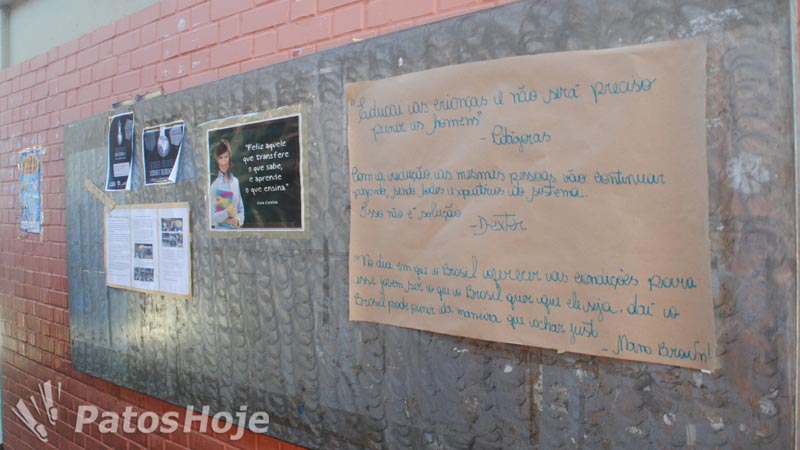 "Feliz aquele
que transfere
o que sabe,
e aprende
o que ensina."
Cora Coralina
"Educai as crianças e não será preciso
punir os homens"
- Pitágoras
Com a redução, as mesmas pessoas vão continuar
pagando, sendo bodes expiatórios do sistema.
Isso não é solução
- Dexter
"No dia em que o Brasil oferecer as condições para
esse jovem ser o que o Brasil quer que ele seja, daí o
Brasil pode punir da maneira que achar just
- Mano Brown!
PatosHoje